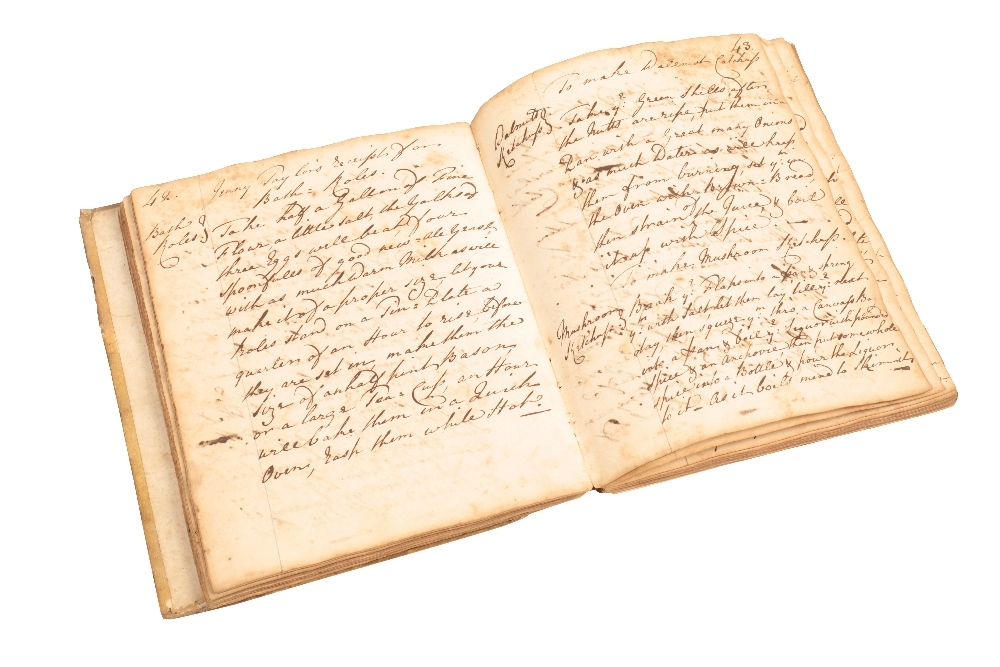 42.
Jenny Taylor's Receipt for
Bath Roles.
Bath
Roles
Take half a Gallon of Fine
Flour a little salt the Yolks of
three Eggs well beat four
Spoonfulls of good new Ale Yeast
with as much Warm Milk as will
make it of a proper size let your
Roles stand on a Tin Plate a
quarter of an Hour to rise before
they are set in, make them the
size of an half pint Bason
or a large Tea Cup, an Hour
will bake them in a Quick
Oven, rasp them while Hot.
43
To make Wallnut Catchup
Walnutt
Ketchup
Take ye Green Shells after
the Nutts are ripe, put them in a
Pan with a Great many Onions
& as much Water as will keep
them from burning set ym in
the Oven with Brown Bread
then strain of the Juice & boil
it up with Spice
To make Mushroom Ketchup
Mushroom
Ketchup
Break ye Flaps into a Pan &
with salt let them lay till ye next
day then squeeze ym thro' a Canvass Bag
into a Pan & boil ye Liquor with pound
Spice & an Anchovie then put some whole
Spice into a Bottle & pour the Liquor
to it - As it boils mind to skim it